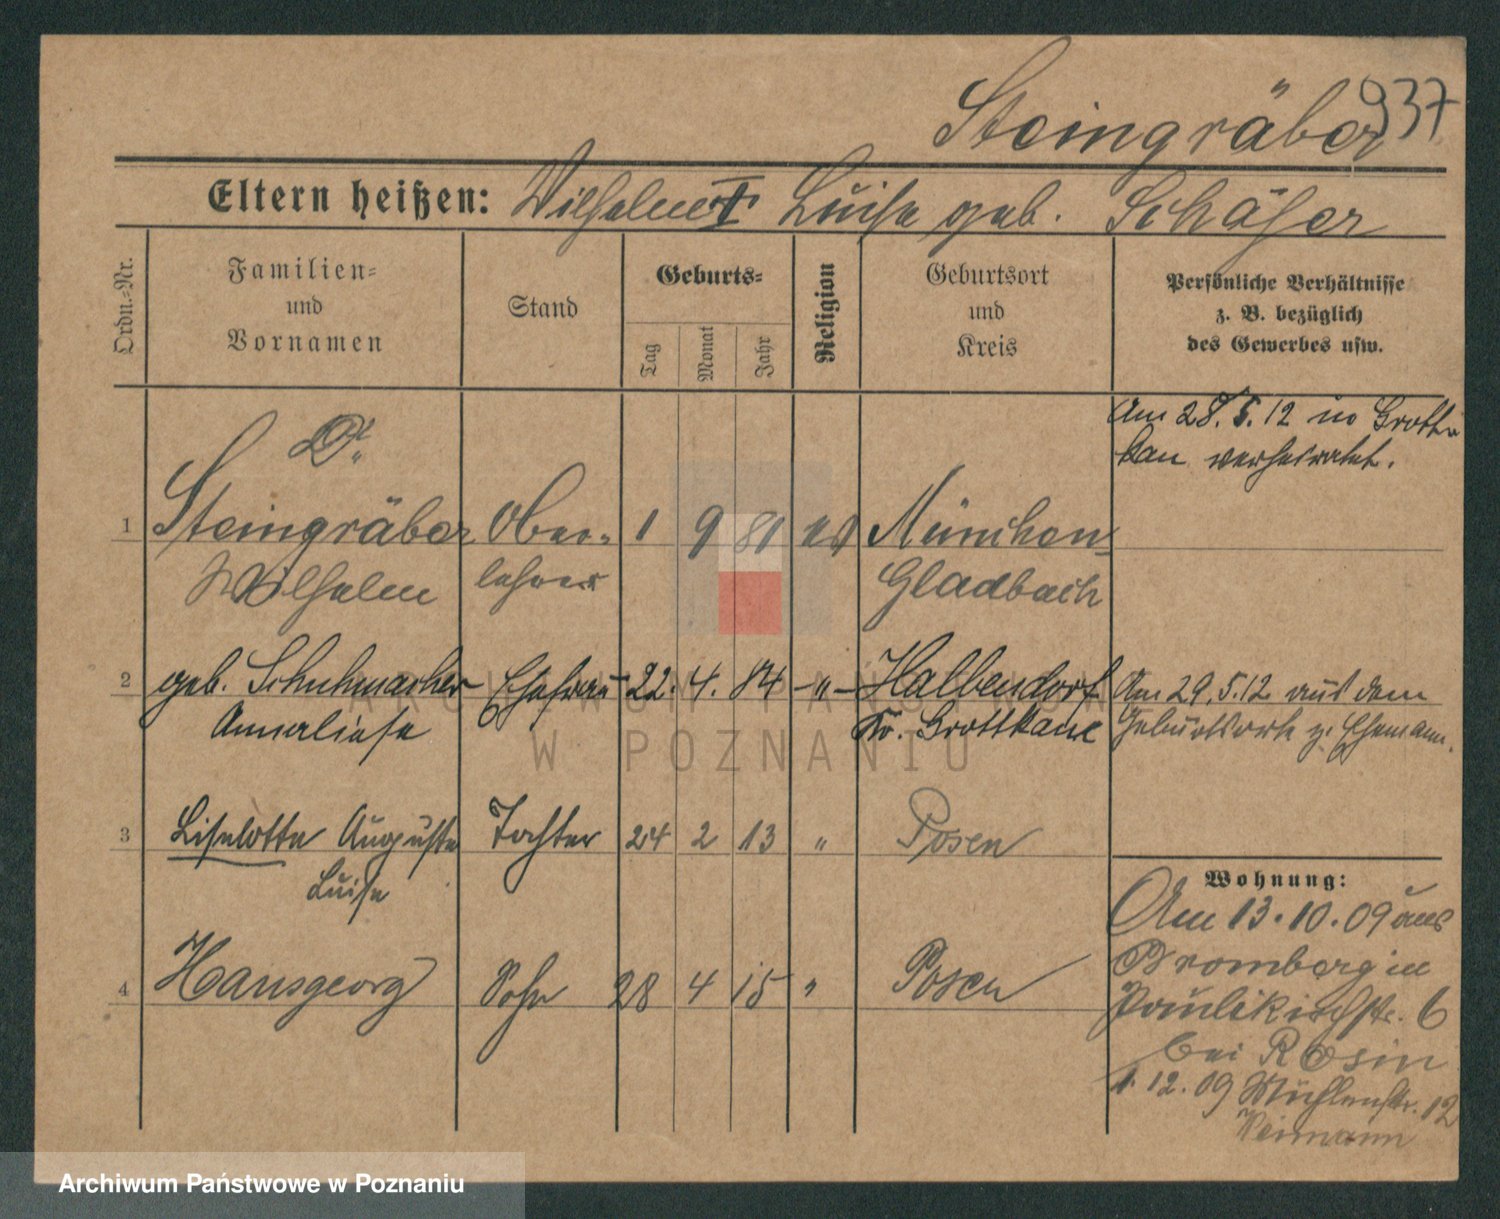 937
Steingräber
Eltern heißen: Wilhelm Luise geb. Schäfer
Ordn.-Nr.
Familien- und Vornamen
Stand
Geburts-
Tag
Monat
Jahr
Religion
Geburtsort und Kreis
Persönliche Verhältnisse
z. B. bezüglich
des Gewerbes usw.
Am 28.5.12 in Grott-
kau verheiratet.
Dr.
1 Steingräber Ober- 1 9 81 München-
Wilhelm lehrer Gladbach
2 geb. Schuhmacher Ehefrau 22. 4. 84 -"- Halbendorf Am 29.5.12 aus dem
Annaliese Kr. Grottkau Geburtsorte z. Ehemann.
3 Liselotte Auguste Tochter 24 2 13 " Posen
Luise
4 Hansgeorg Sohn 28 4 15 " Posen
Wohnung:
Am 13.10.09 aus
Bromberg in
Paulikirchstr. 6
bei Rosin
1.12.09 Mühlenstr. 12
ARCHIWUM PAŃSTWOWE
W POZNANIU
Archiwum Państwowe w Poznaniu